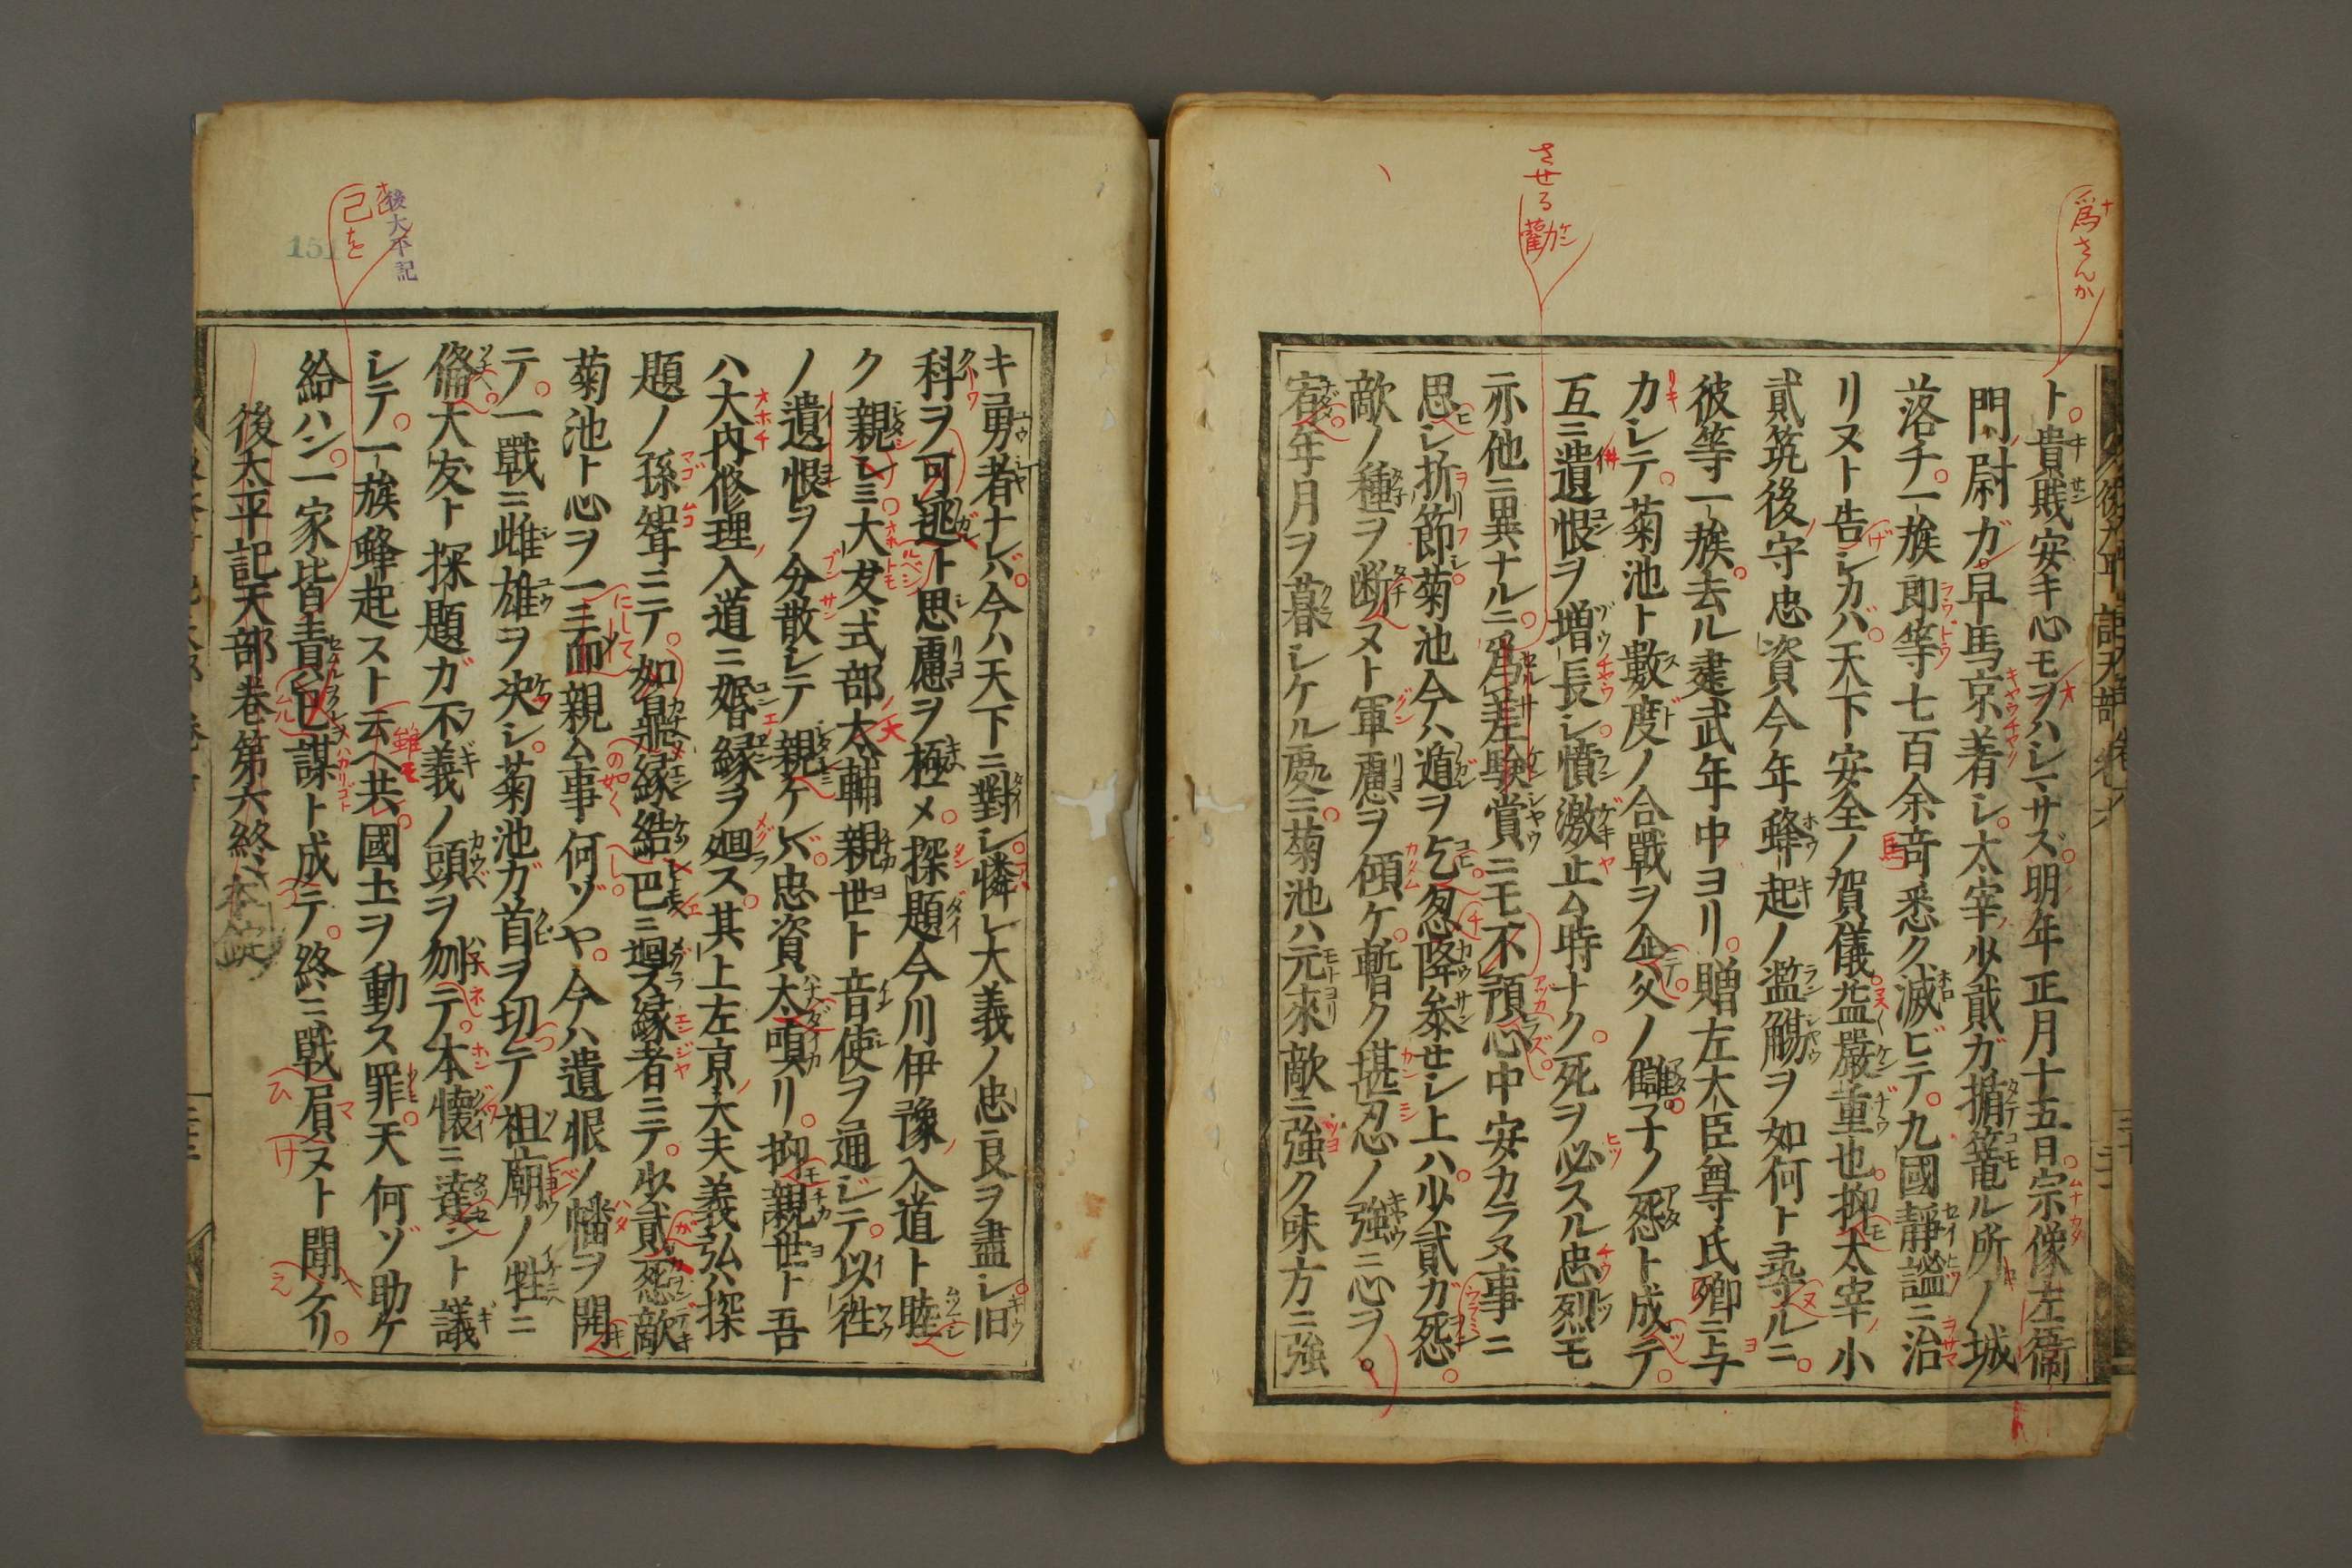 ト貴賎安キ心モヲハシマサズ明年正月十五日宗像左衞
門ノ尉ガ早馬京着シ太宰少貳ガ楯篭ル所ノ城
落チ一族郎等七百余竒悉ク滅ビテ九國靜謐ニ治
リヌト告シカバ天下安全ノ賀儀益嚴重也抑太宰ノ小
貳筑後ノ守忠資今年蜂起ノ濫觴ヲ如何ト尋ルニ
彼等一族去ル建武年中ヨリ贈左大臣尊氏卿ニ与
カシテ菊池ト數度ノ合戰ヲ企父ノ讎子ノ怨ト成テ
互ニ遺恨ヲ増長シ憤激止ム時ナク死ヲ必スル忠烈モ
亦他ニ異ナルニ爲差験賞ニモ不預心中安カラヌ事ニ
思シ折節菊池今ハ遁ヲ乞怱降參セシ上ハ少貳ガ怨
敵ノ種ヲ断ヌト軍慮ヲ傾ケ暫ク堪忍ノ強ニ心ヲ
宥年月ヲ暮シケル處ニ菊池ハ元來敵ニ強ク味方ニ強
キ勇者ナレバ今ハ天下ニ對シ憐レ大義ノ忠良ヲ盡シ旧
科ヲ可逃ト思慮ヲ極メ探題今川伊豫ノ入道ト睦
ク親シミ大友式部太輔親世ト音使ヲ通ジテ以徃
ノ遺恨ヲ分散シテ親ケレバ忠資太嗔リ抑親世ト吾
ハ大内修理ノ入道ニ婚縁ヲ廻ス其上左京ノ大夫義弘ハ探
題ノ孫聟ニテ如鼎縁結巴ニ廻ス縁者ニテ少貳怨敵
菊池ト心ヲ一ニ而親ム事何ゾヤ今ハ遺恨ノ幡ヲ開
テ一戰ニ雌雄ヲ決シ菊池ガ首ヲ切テ祖廟ノ牲ニ
備大友ト探題ガ不義ノ頭ヲ刎テ本懐ニ達ント議
シテ一族蜂起スト云ヘ共國土ヲ動ス罪天何ゾ助ケ
給ハン一家皆責已謀ト成テ終ニ戰屓ヌト聞ケリ
後太平記天部巻第六終
爲さんか
させる勸
己を
後太平記